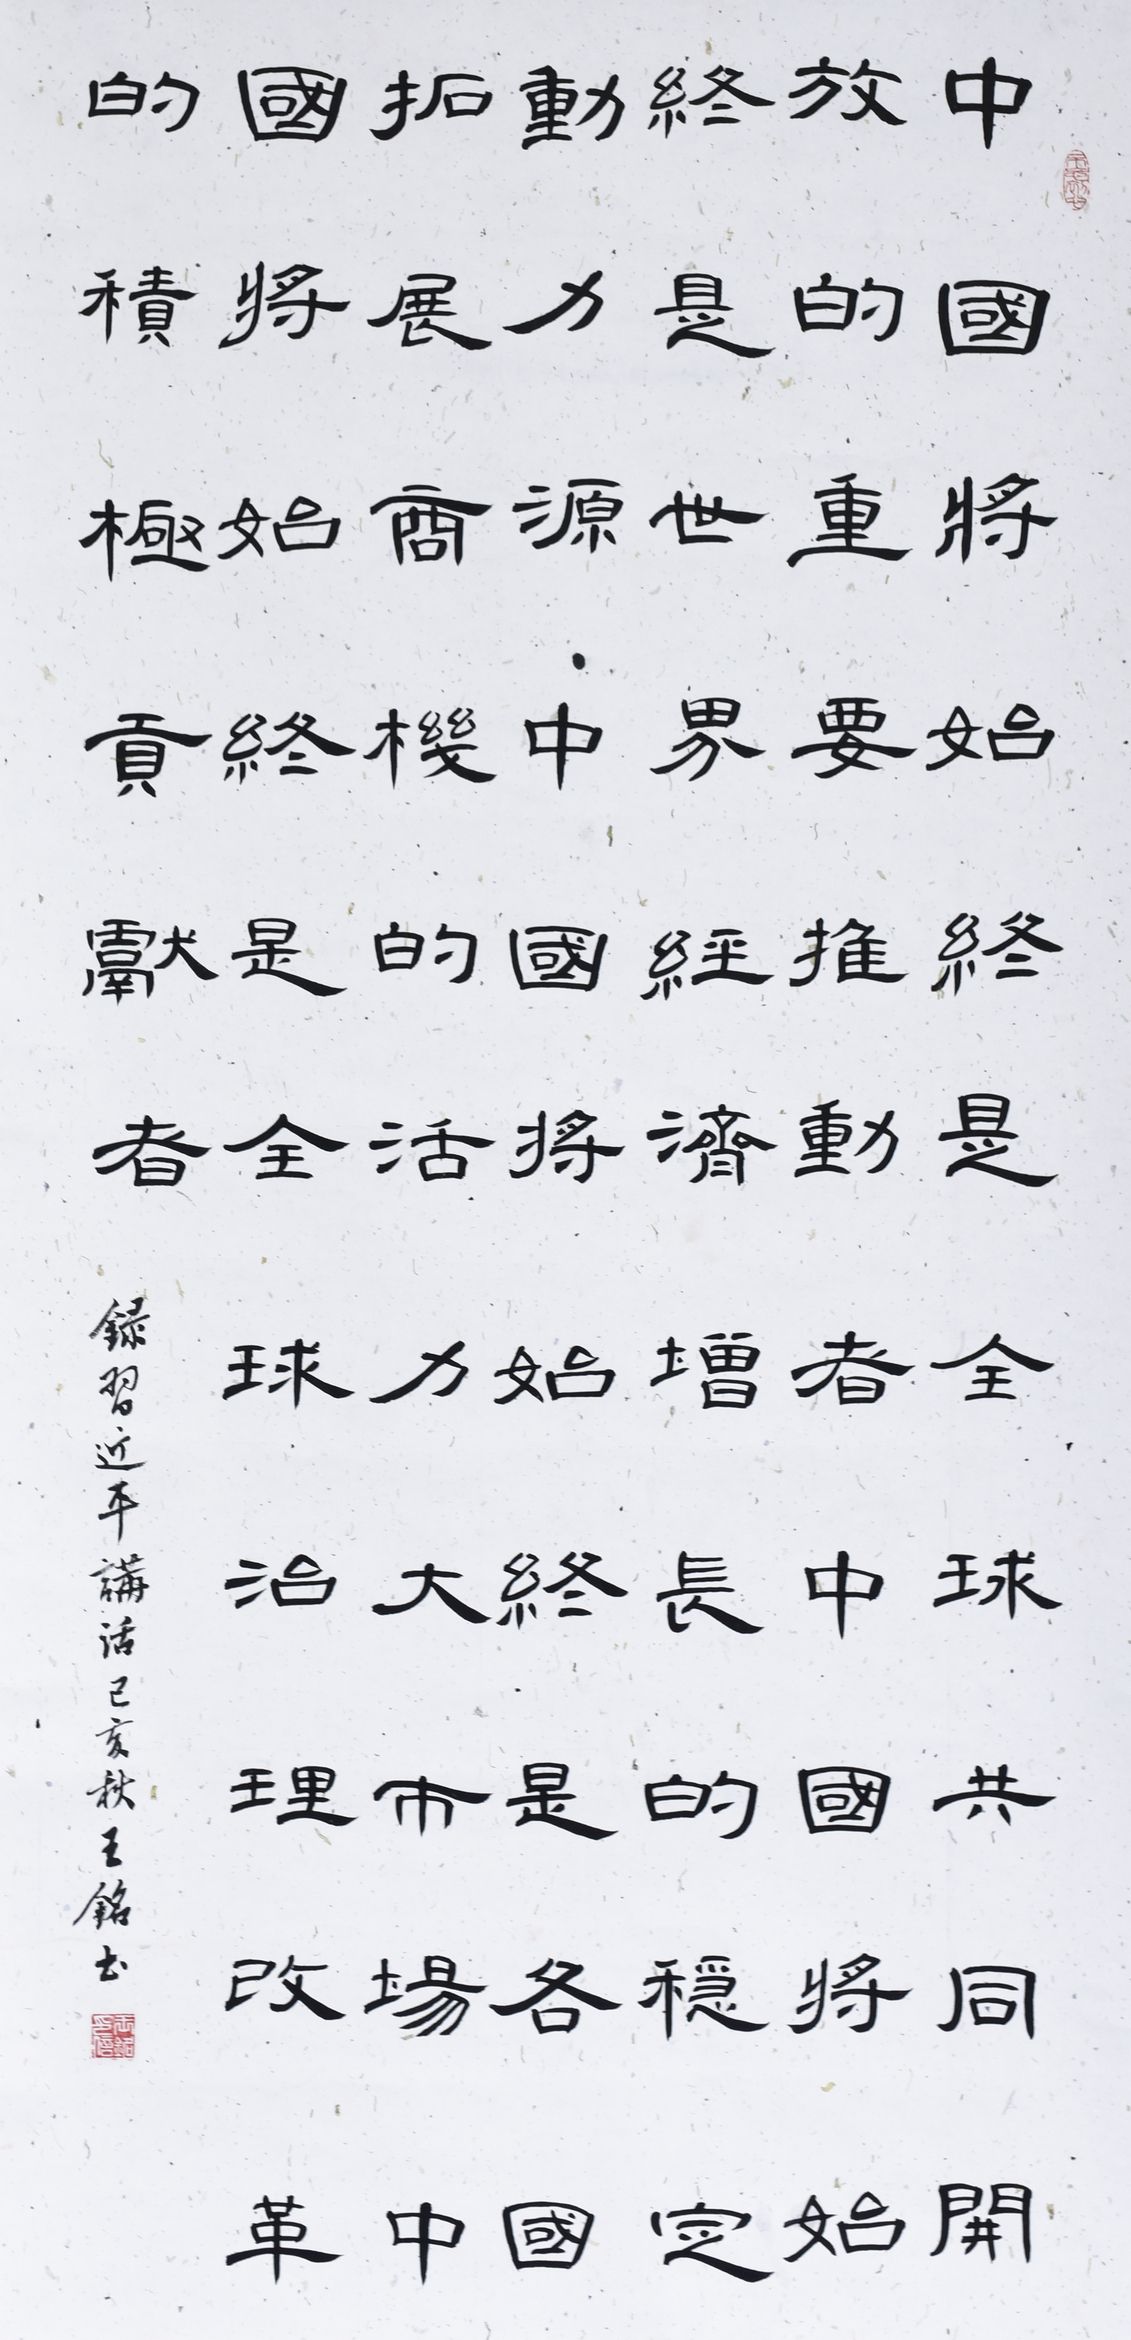 中國將始終是全球共同開
放的重要推動者中國將始
終是世界經濟增長的穩定
動力源中國將始終是各國
拓展商機的活力大市場中
國將始終是全球治理改革
的積極貢獻者
録習近平講話己亥秋王銘书